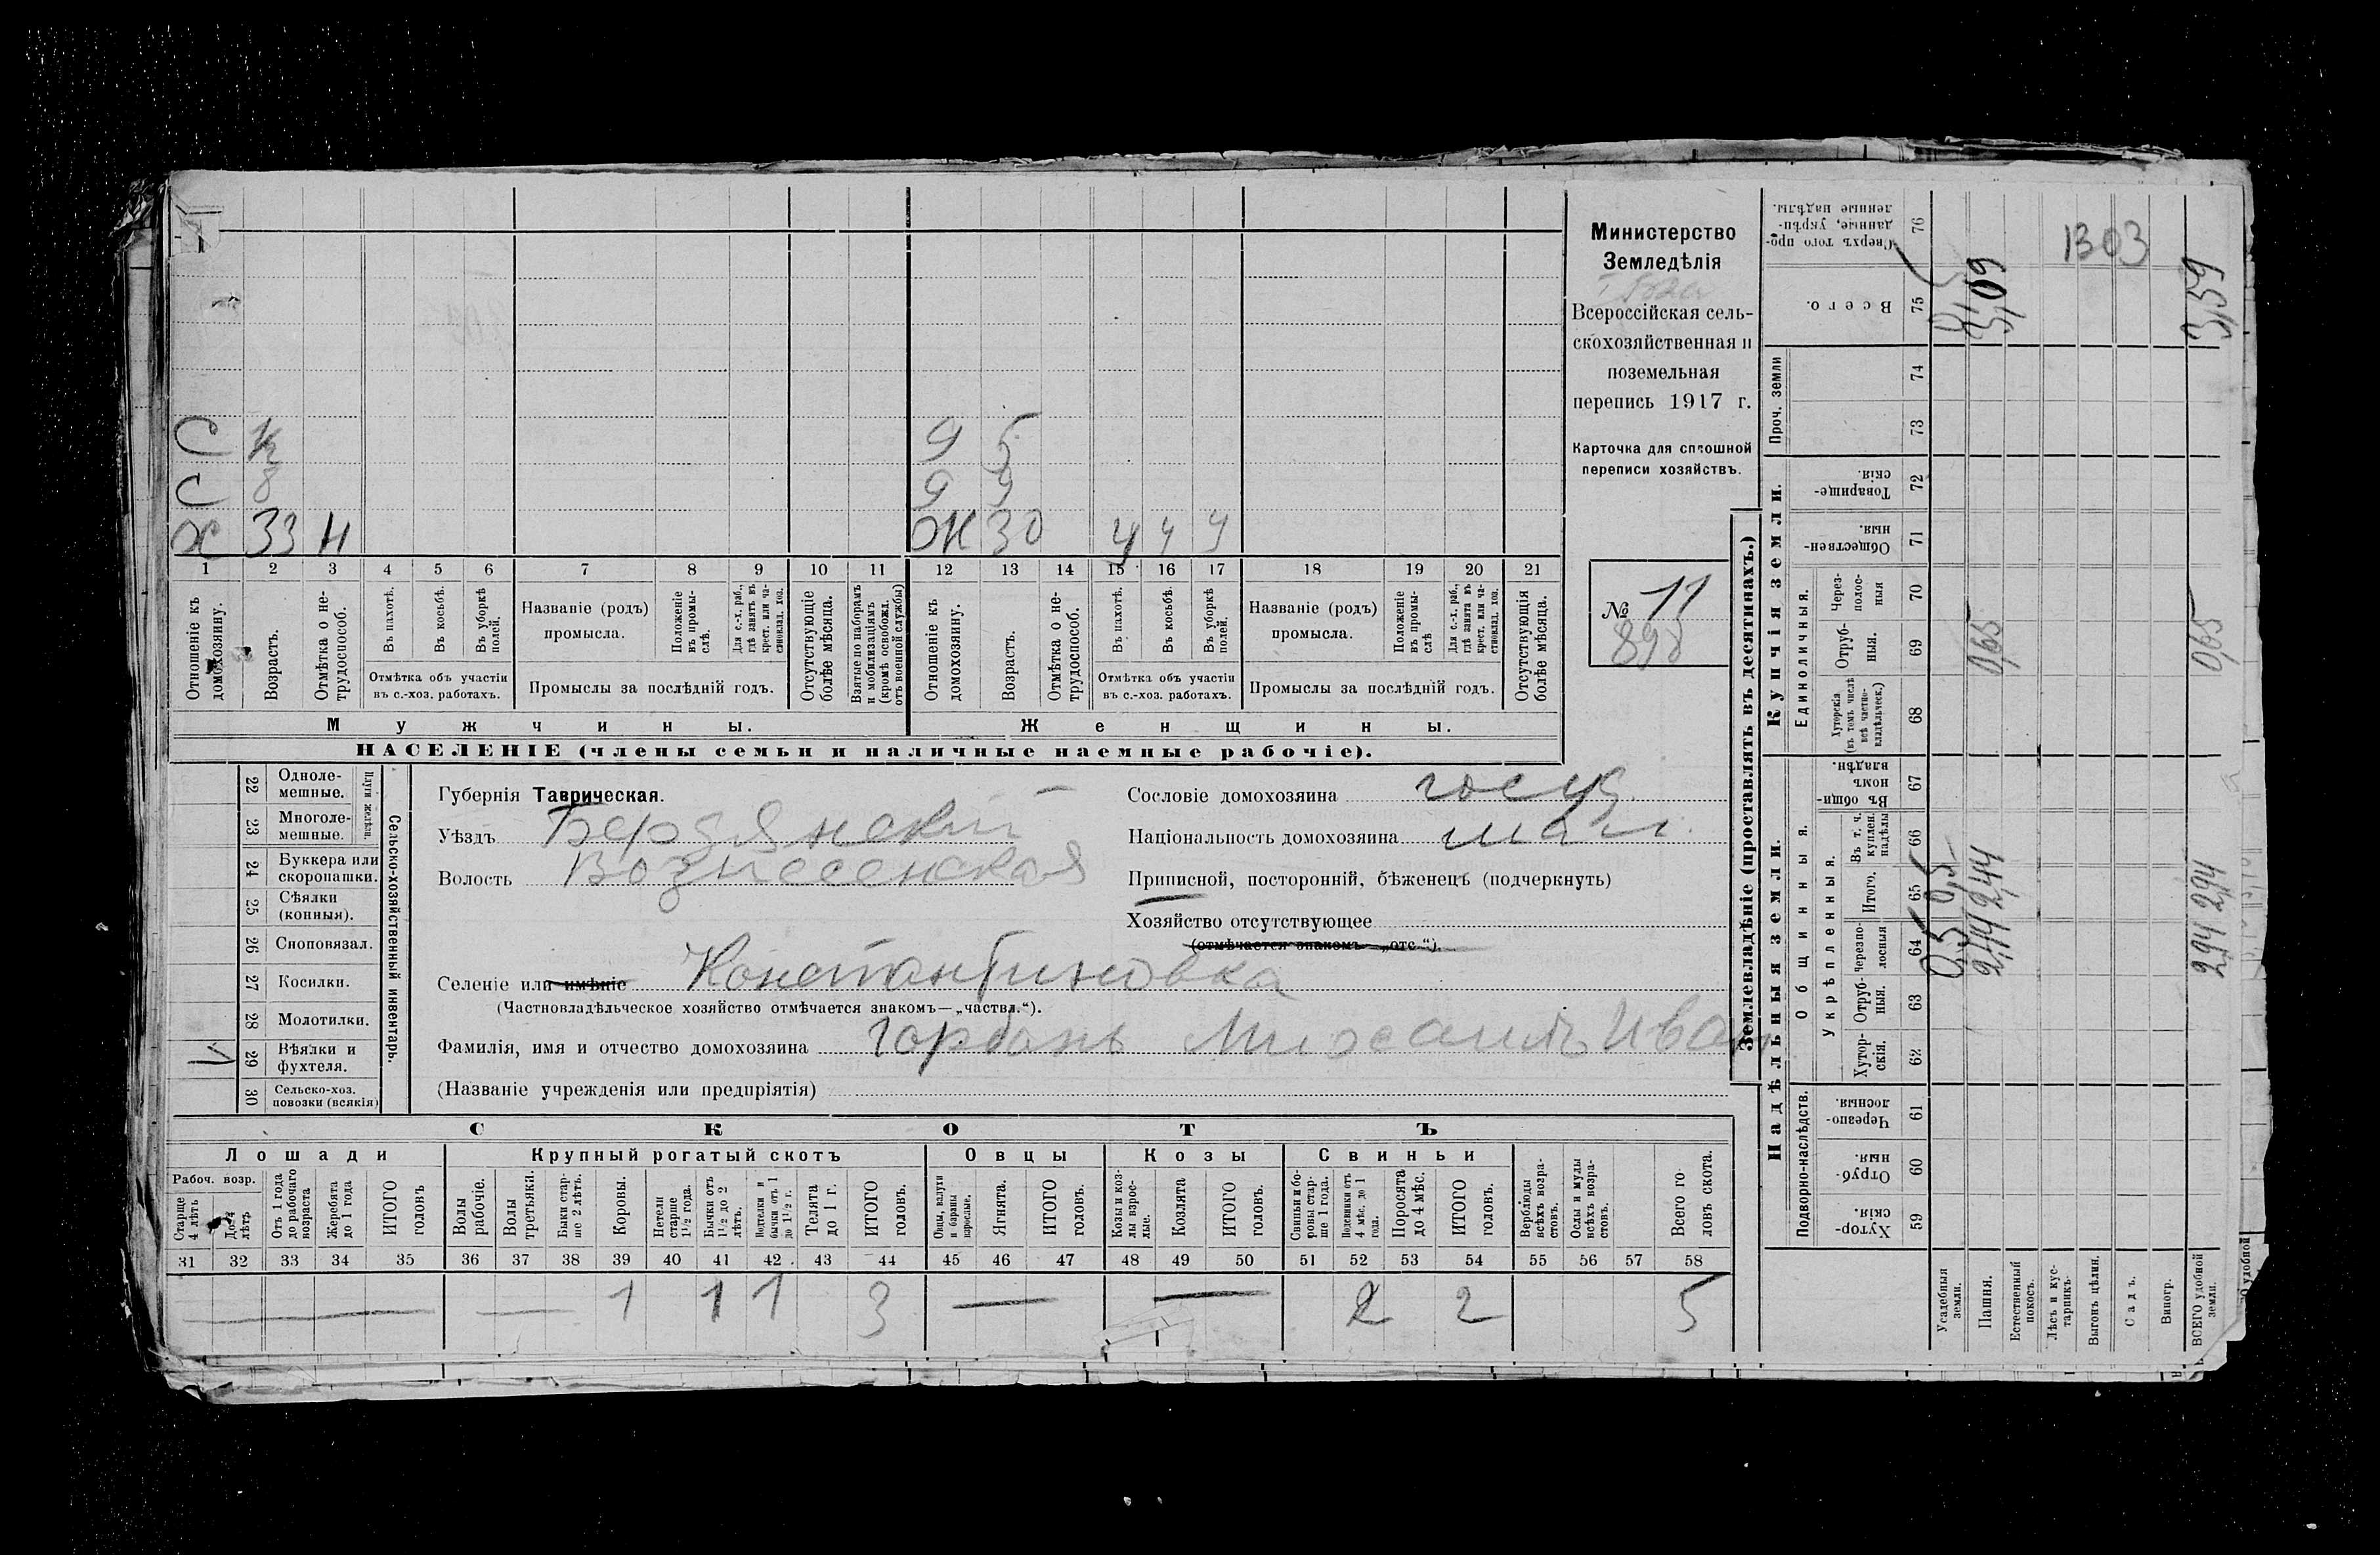 Министерство
Земледѣлія
Всероссійская сель-
скохозяйственная и
поземельная
перепись 1917 г.
Карточка для сплошной
переписи хозяйствъ.
№ 11
898
С
9 5
С 8
9 9
х 33 н
ж 30 ч ч ч
1 2 3 4 5 6 7 8 9 10 11 12 13 14 15 16 17 18 19 20 21
Отношеніе къ домохозяину.
Возрастъ.
Отмѣтка о не-трудоспособ.
Въ пахотѣ.
Въ косьбѣ.
Въ уборкѣ полей.
Отмѣтка объ участіи
въ с.-хоз. работахъ.
Названіе (родъ)
промысла.
Положеніе въ промы-слѣ.
Для с.-х. раб., гдѣ занятъ въ крест. или ча-стновлад. хоз.
Промыслы за послѣдній годъ.
Отсутствующіе болѣе мѣсяца.
Взятые по наборамъ и мобилизаціямъ (кромѣ освобожд. отъ военной службы)
Отношеніе къ домохозяину.
Возрастъ.
Отмѣтка о не-трудоспособ.
Въ пахотѣ.
Въ косьбѣ.
Въ уборкѣ полей.
Отмѣтка объ участіи
въ с.-хоз. работахъ.
Названіе (родъ)
промысла.
Положеніе въ промы-слѣ
Для с.-х. раб., гдѣ занята въ крест. или ча-стновлад. хоз.
Промыслы за послѣдній годъ.
Отсутствующія болѣе мѣсяца.
Мужчины.
Женщины.
НАСЕЛЕНІЕ (члены семьи и наличные наемные рабочіе).
22 Одноле-мешные.
23 Многоле-мешные.
Плуги желѣзн.
24 Буккера или скоропашки.
25 Сѣялки (конныя).
26 Сноповязал.
27 Косилки.
28 Молотилки.
29 Вѣялки и фухтеля.
30 Сельско-хоз. повозки (всякія)
Сельско-хозяйственный инвентарь.
Губернія Таврическая.
Уѣздъ Бердянскій
Волость Вознесенская
Сословіе домохозяина госуд.
Національность домохозяина мал.
Приписной, посторонній, бѣженецъ (подчеркнуть)
Хозяйство отсутствующее
(отмѣчается знакомъ „отс.“).
Селеніе или имѣніе Константиновка
(Частновладѣльческое хозяйство отмѣчается знакомъ—„частвл.“).
Фамилія, имя и отчество домохозяина Горбань Михаилъ Иван
(Названіе учрежденія или предпріятія)
СКОТЪ
Лошади
Крупный рогатый скотъ
Овцы
Козы
Свиньи
Рабоч. возр.
Старше 4 лѣтъ
До 4 лѣтъ
Отъ 1 года до рабочаго возраста
Жеребята до 1 года
ИТОГО головъ
Волы рабочіе.
Волы третьяки.
Быки стар-ше 2 лѣтъ.
Коровы.
Нетели старше 1½ года.
Бычки отъ 1½ до 2 лѣтъ.
Подтелки и бычки отъ 1 до 1½ г.
Телята до 1 г.
ИТОГО головъ.
Овцы, валухи и бараны взрослые.
Ягнята.
ИТОГО головъ.
Козы и коз-лы взрос-лые.
Козлята
ИТОГО головъ.
Свиньи и бо-ровы стар-ше 1 года.
Подсвинки отъ 4 мѣс. до 1 года.
Поросята до 4 мѣс.
ИТОГО головъ.
Верблюды всѣхъ возра-стовъ.
Ослы и мулы всѣхъ возра-стовъ.
Всего го-ловъ скота.
31 32 33 34 35 36 37 38 39 40 41 42 43 44 45 46 47 48 49 50 51 52 53 54 55 56 57 58
— — 1 1 1 3 — — 2 2 5
Землевладѣніе (проставлять въ десятинахъ.)
Надѣльныя земли.
Купчія земли.
Проч. земли
Подворно-наслѣдств.
Общинныя.
Укрѣпленныя.
Единоличныя.
Хутор-скія. 59
Отруб-ныя. 60
Черезпо-лосныя. 61
Хутор-скія. 62
Отруб-ныя. 63
Черезпо-лосныя 64
Итого. 65
Въ т. ч. куплен. надѣлы 66
Въ общин-номъ владѣн. 67
Хуторскія (въ томъ числѣ всѣ частно-владѣльческ.) 68
Отруб-ныя. 69
Через-полос-ныя 70
Обществен-ныя. 71
Товарище-скія. 72
73
74
Всего. 75
Сверхъ того про-данные, укрѣп-ленные надѣлы. 76
Усадебныя земли. 0,5 0,5
Пашня. 2,44 2,44 0,65 3,09
Естественный покосъ.
Лѣсъ и кус-тарникъ.
Выгонъ цѣлин.
Садъ.
Виногр.
ВСЕГО удобной земли. 2,94 2,94 0,65 3,59
1303